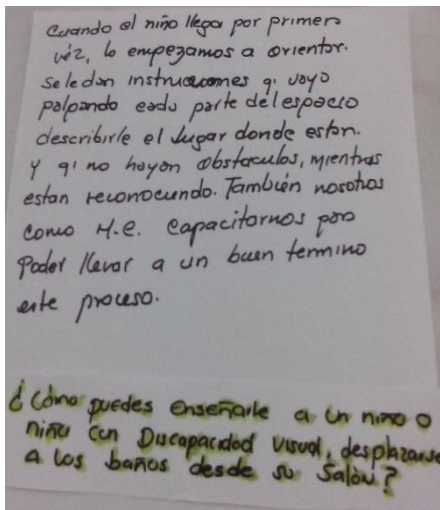 Cuando el niño llega por primera
véz, lo empezamos a orientar.
se le dan instrucciones q' vaya
palpando cada parte del espacio
describirle el lugar donde estan.
y q' no hayan obstaculos, mientras
estan reconociendo. También nosotros
como M.C. capacitarnos para
Poder llevar a un buen termino
este proceso.
¿Cómo puedes enseñarle a un niño o
niña con Discapacidad visual, desplazarse
a los baños desde su salón?